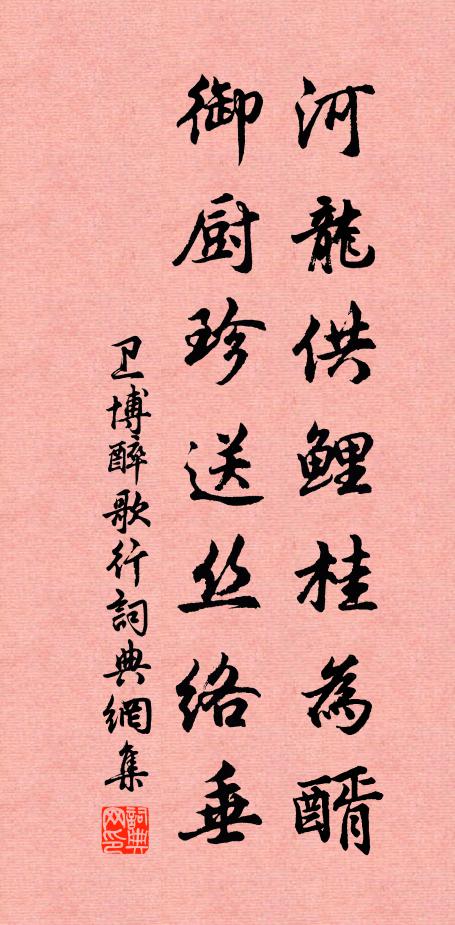 河龍供鯉桂為醑
御厨珍送丝络垂
卫博醉歌行詞典網集
詞典网印